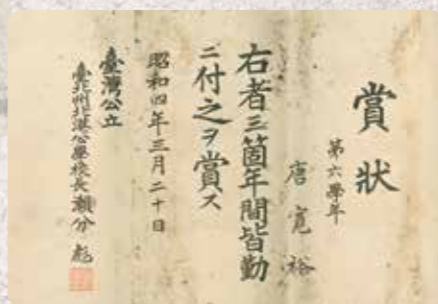 賞狀
第六學年
唐寬裕
右者三箇年間皆勤
ニ付之ヲ賞ス
昭和四年三月二十日
臺灣公立
臺北州北港公學校長瀨分彪